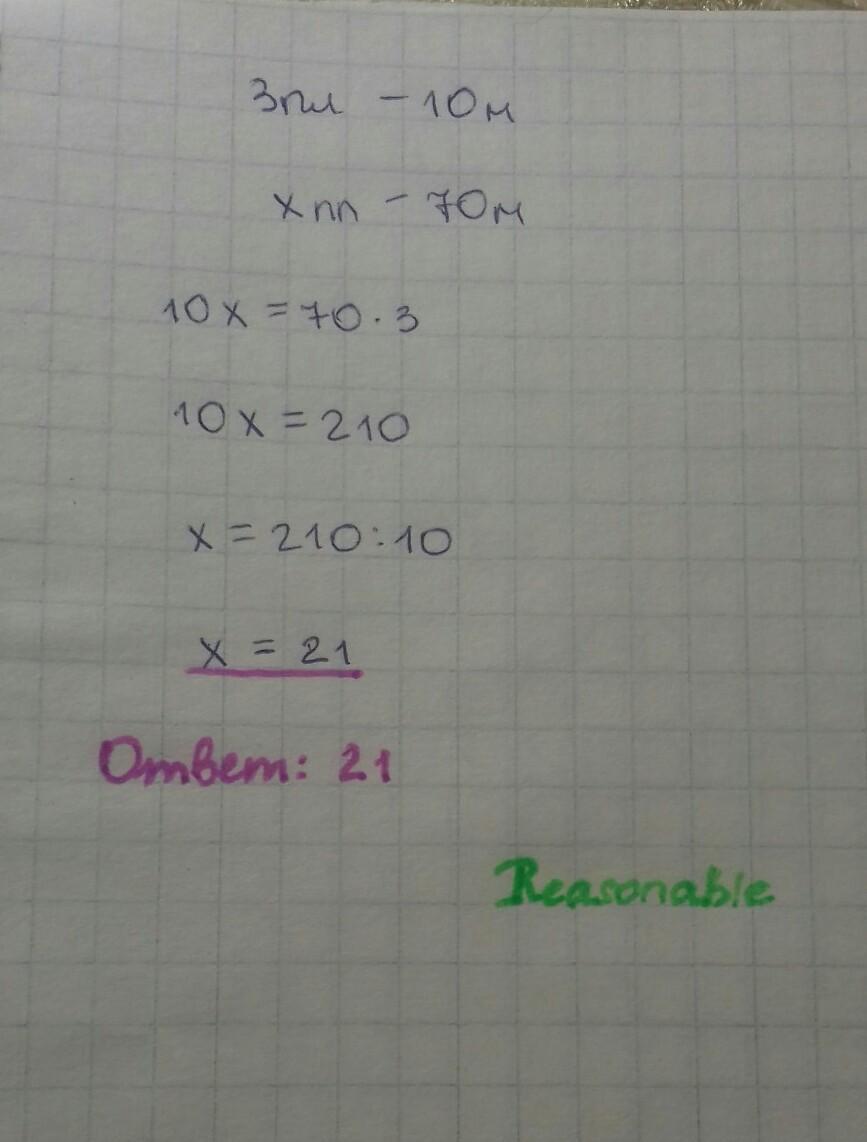 3пл - 10м
x пл - 70м
10x = 70 · 3
10x = 210
x = 210 : 10
x = 21
Ответ: 21
Reasonable